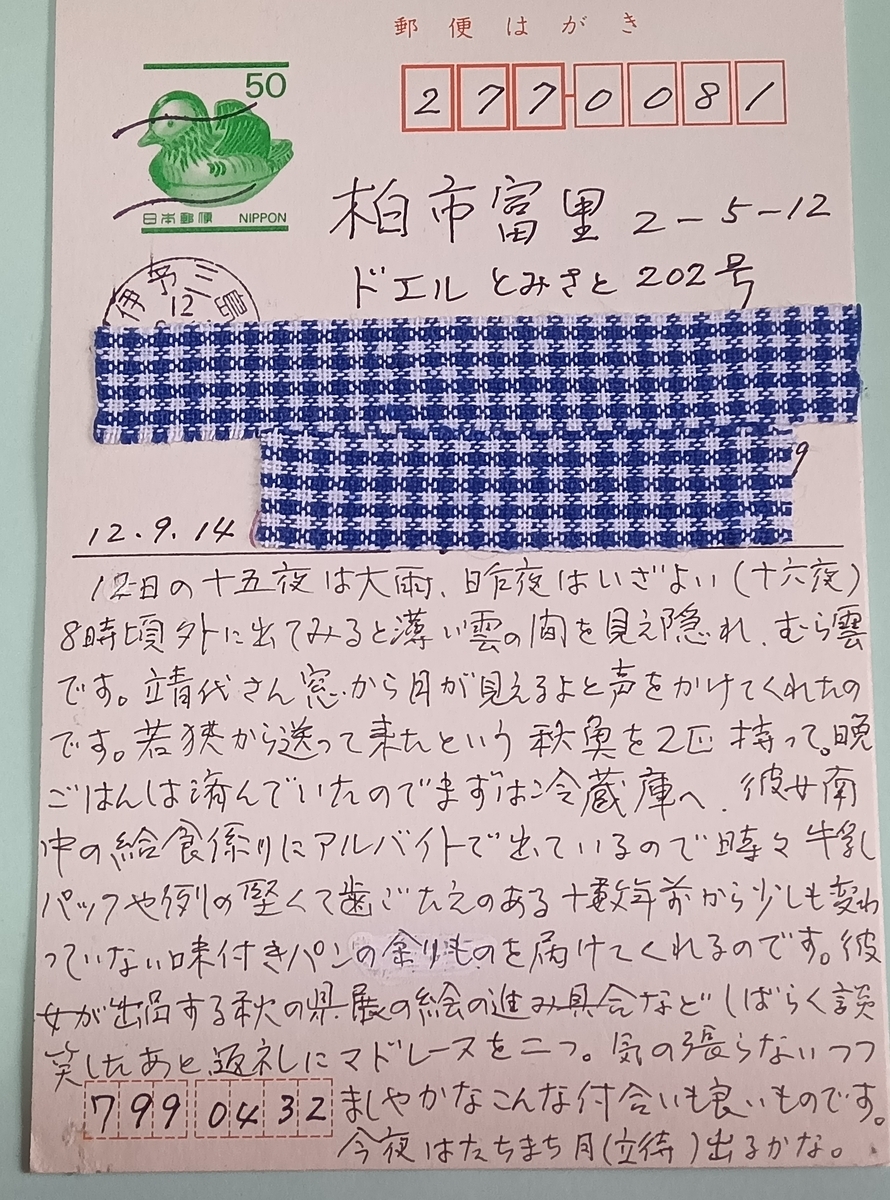 郵便はがき
50
日本郵便 NIPPON
277-0081
柏市富里2-5-12
ドエルとみさと202号
伊予三島
12
9
12.9.14
12日の十五夜は大雨、昨夜はいざよい(十六夜)
8時頃外に出てみると薄い雲の間を見え隠れ、むら雲
です。靖代さん窓から月が見えるよと声をかけてくれたの
です。若狭から送って来たという秋魚を2匹持って。晩
ごはんは済んでいたのでまずは冷蔵庫へ、彼女南
中の給食係りにアルバイトで出ているので時々牛乳
パックや例の堅くて歯ごたえのある十数年前から少しも変わ
っていない味付きパンの余りものを届けてくれるのです。彼
女が出品する秋の県展の絵の進み具合などしばらく談
笑したあと返礼にマドレーヌを二つ。気の張らないつつ
ましやかなこんな付合いも良いものです。
今夜はたちまち月(立待)出るかな。
799 0432